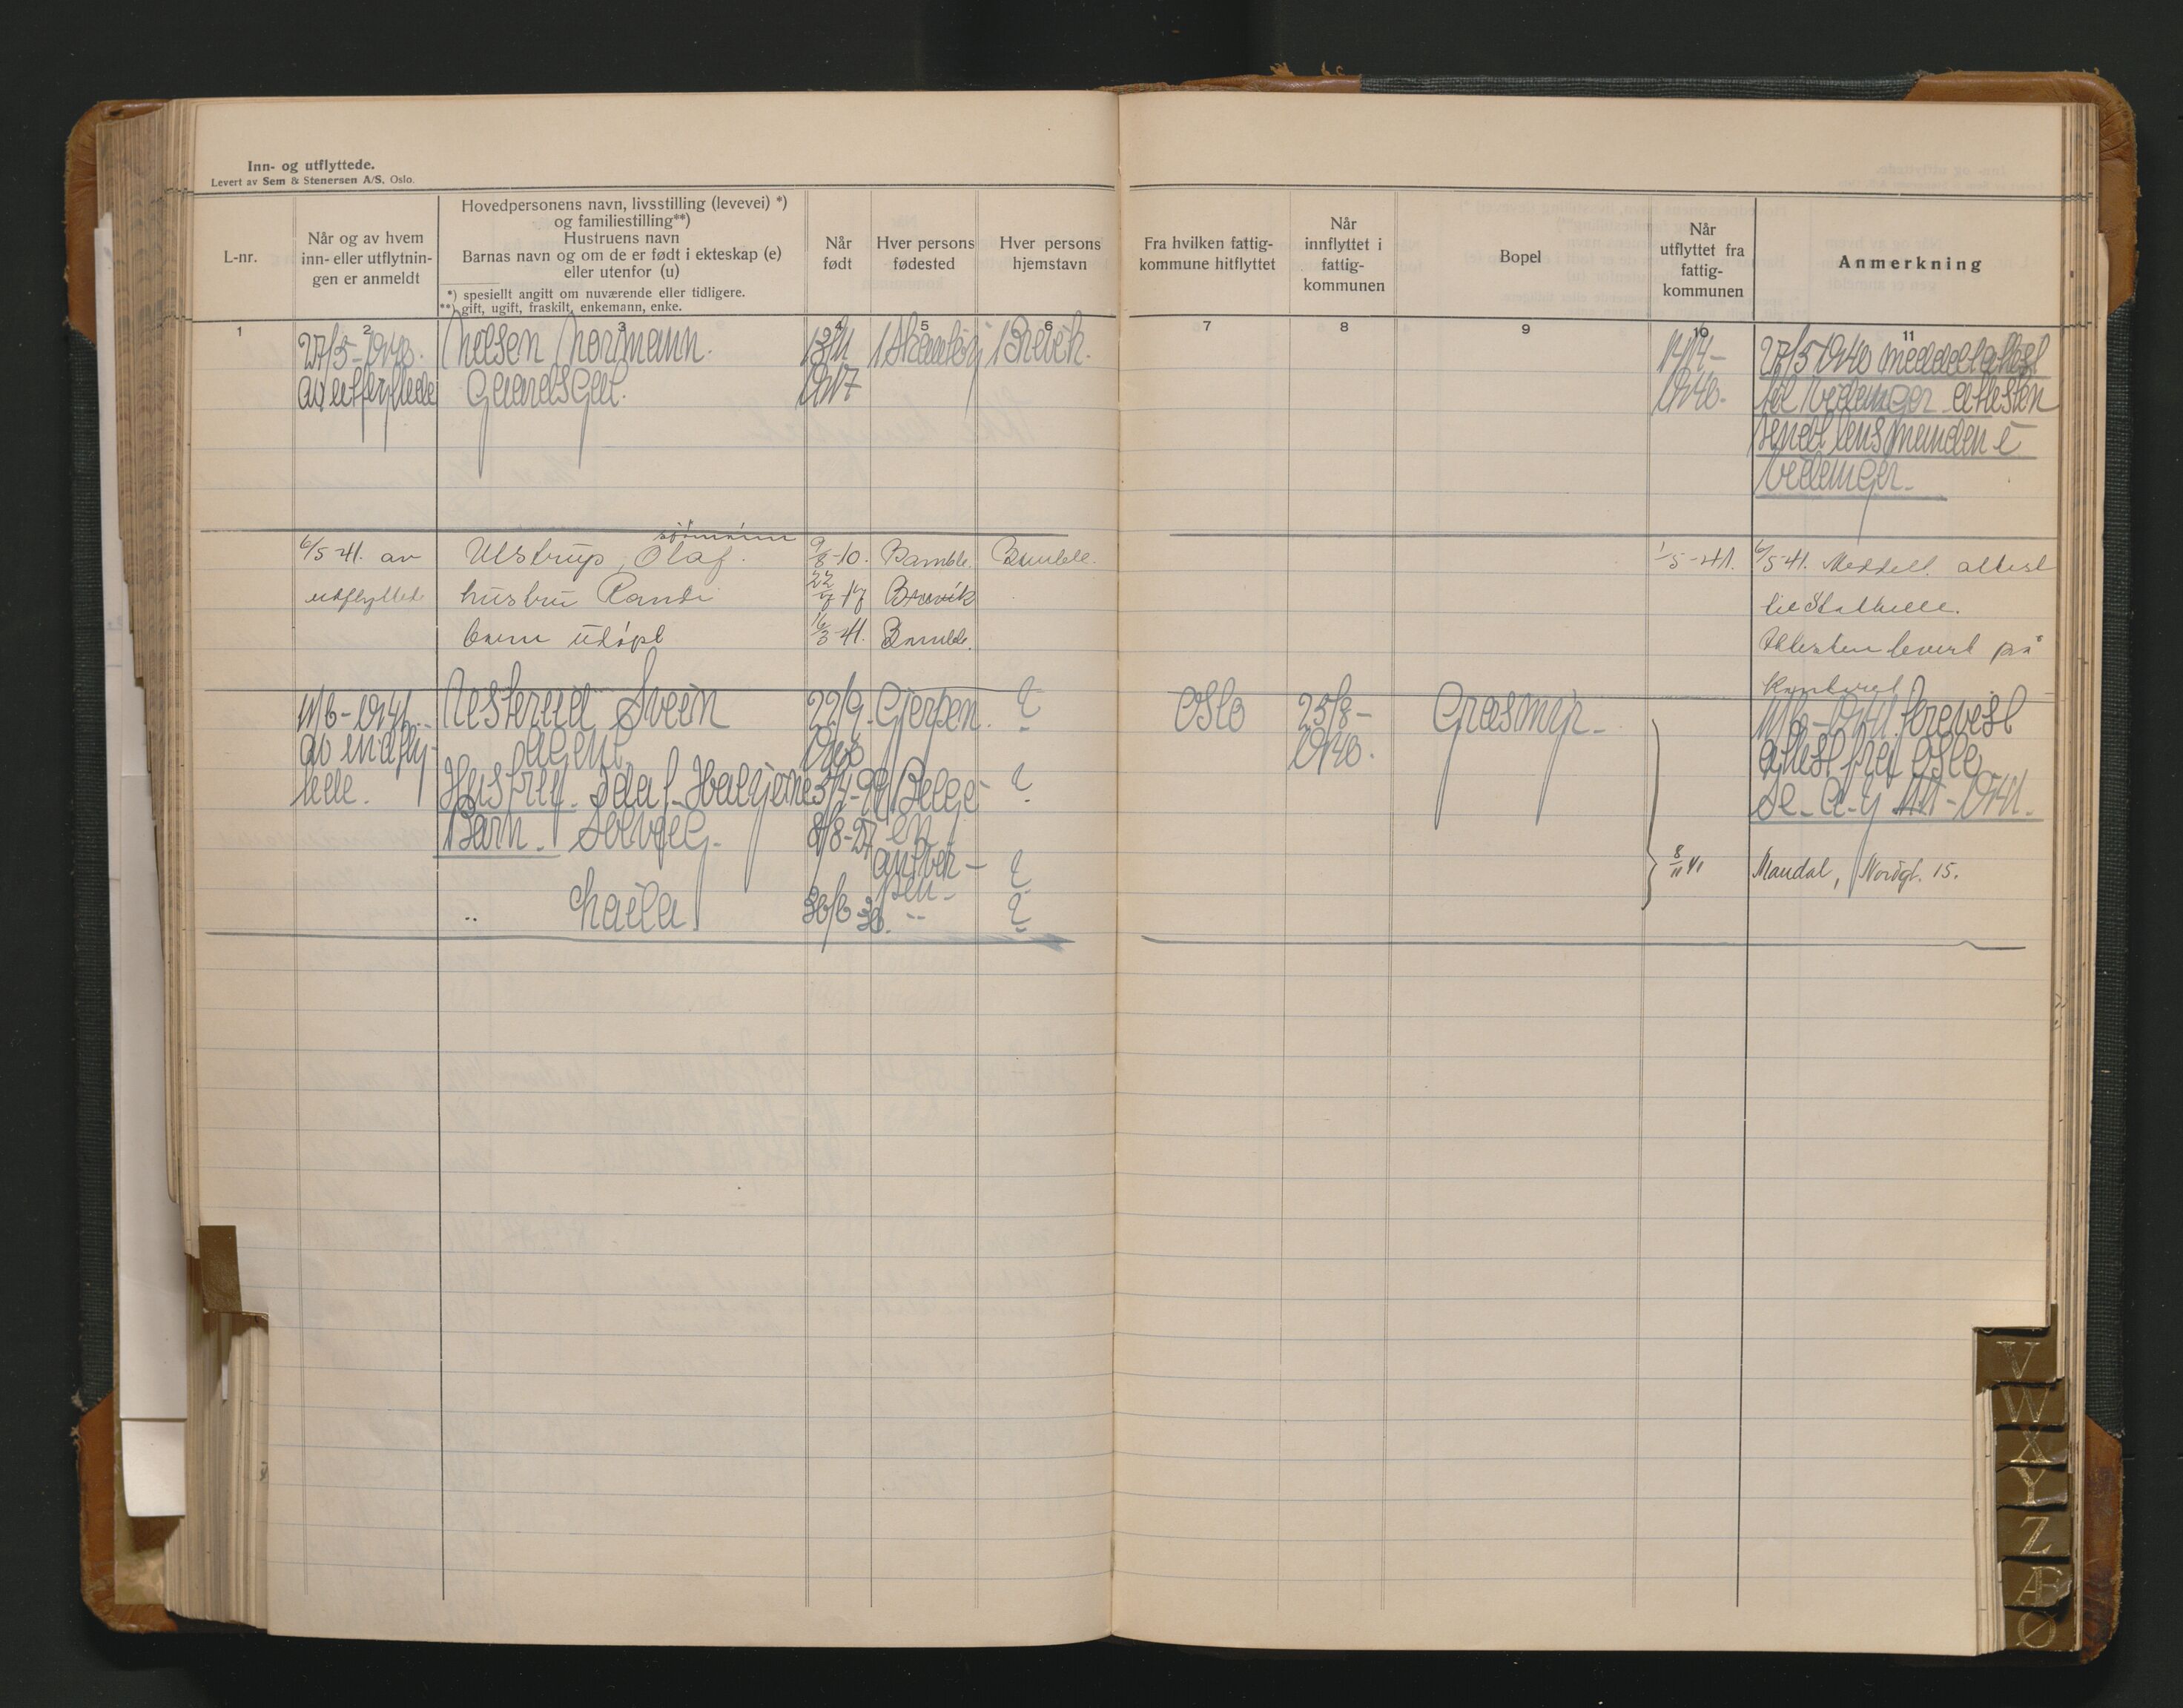 Inn- og utflyttede.
Levert av Sem & Stenersen A/S, Oslo.
L-nr.
Når og av hvem
inn- eller utflytnin-
gen er anmeldt
Hovedpersonens navn, livsstilling (levevei) *)
og familiestilling**)
Hustruens navn
Barnas navn og om de er født i ekteskap (e)
eller utenfor (u)
*) spesiellt angitt om nuværende eller tidligere.
**) gift, ugift, fraskilt, enkemann, enke.
Når
født
Hver persons
fødested
Hver persons
hjemstavn
Fra hvilken fattig-
kommune hitflyttet
Når
innflyttet i
fattig-
kommunen
Bopel
Når
utflyttet fra
fattig-
kommunen
Anmerkning
1 2 3 4 5 6 7 8 9 10 11
27/5-1940. Normann. 13/11 Brevik. 27/5 1940 meddelt attest
av utflyttede Gaardsgut. 1917 1940. til attesten
sendt lensmanden i
sjømann
6/5 41. av Ulstrup, Olaf. 9/8-10. Bamble. Bamble. 1/5-41. 6/5 41. Meddelt attest
utflyttede hustru Randi 22/7 17 Brevik til Stathelle.
barn udøpt 16/3-41. Bamble. Attesten levert på
kontoret
11/6-1941. Svein 22/9. Gjerpen. ? Oslo 25/8- Grasmyr. 11/6-1941. krevest
av indflyt- agent. 1900 1940. attest fra Oslo
tede. Hustru. Ida f. 3/4-99 Belgi- ?
Barn. Solveig. 8/8-27 en
Antver- ?
8/11 41 Mandal, Nordgt. 15.
pen-
" Laila 30/6 30. " ?
V
W
X
Y
Z
Æ
Ø